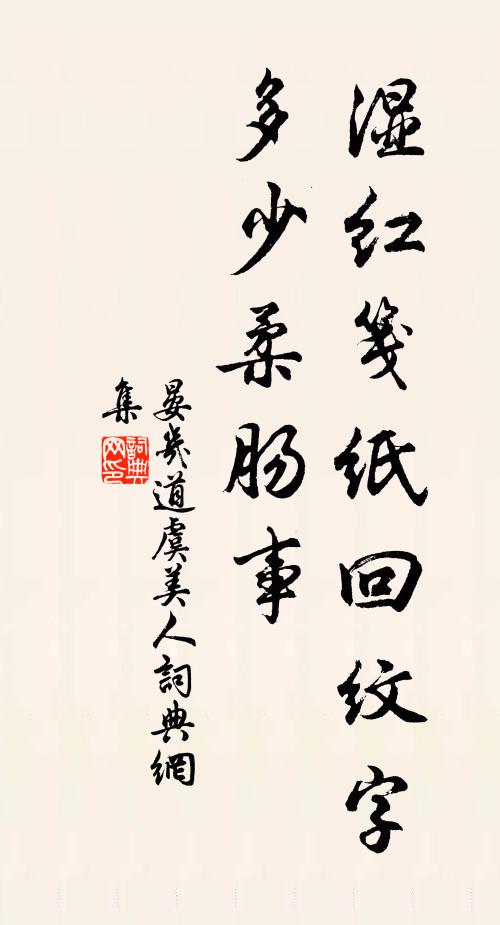 湿红笺纸回纹字
多少柔肠事
晏几道虞美人詞典網
集
詞典网印